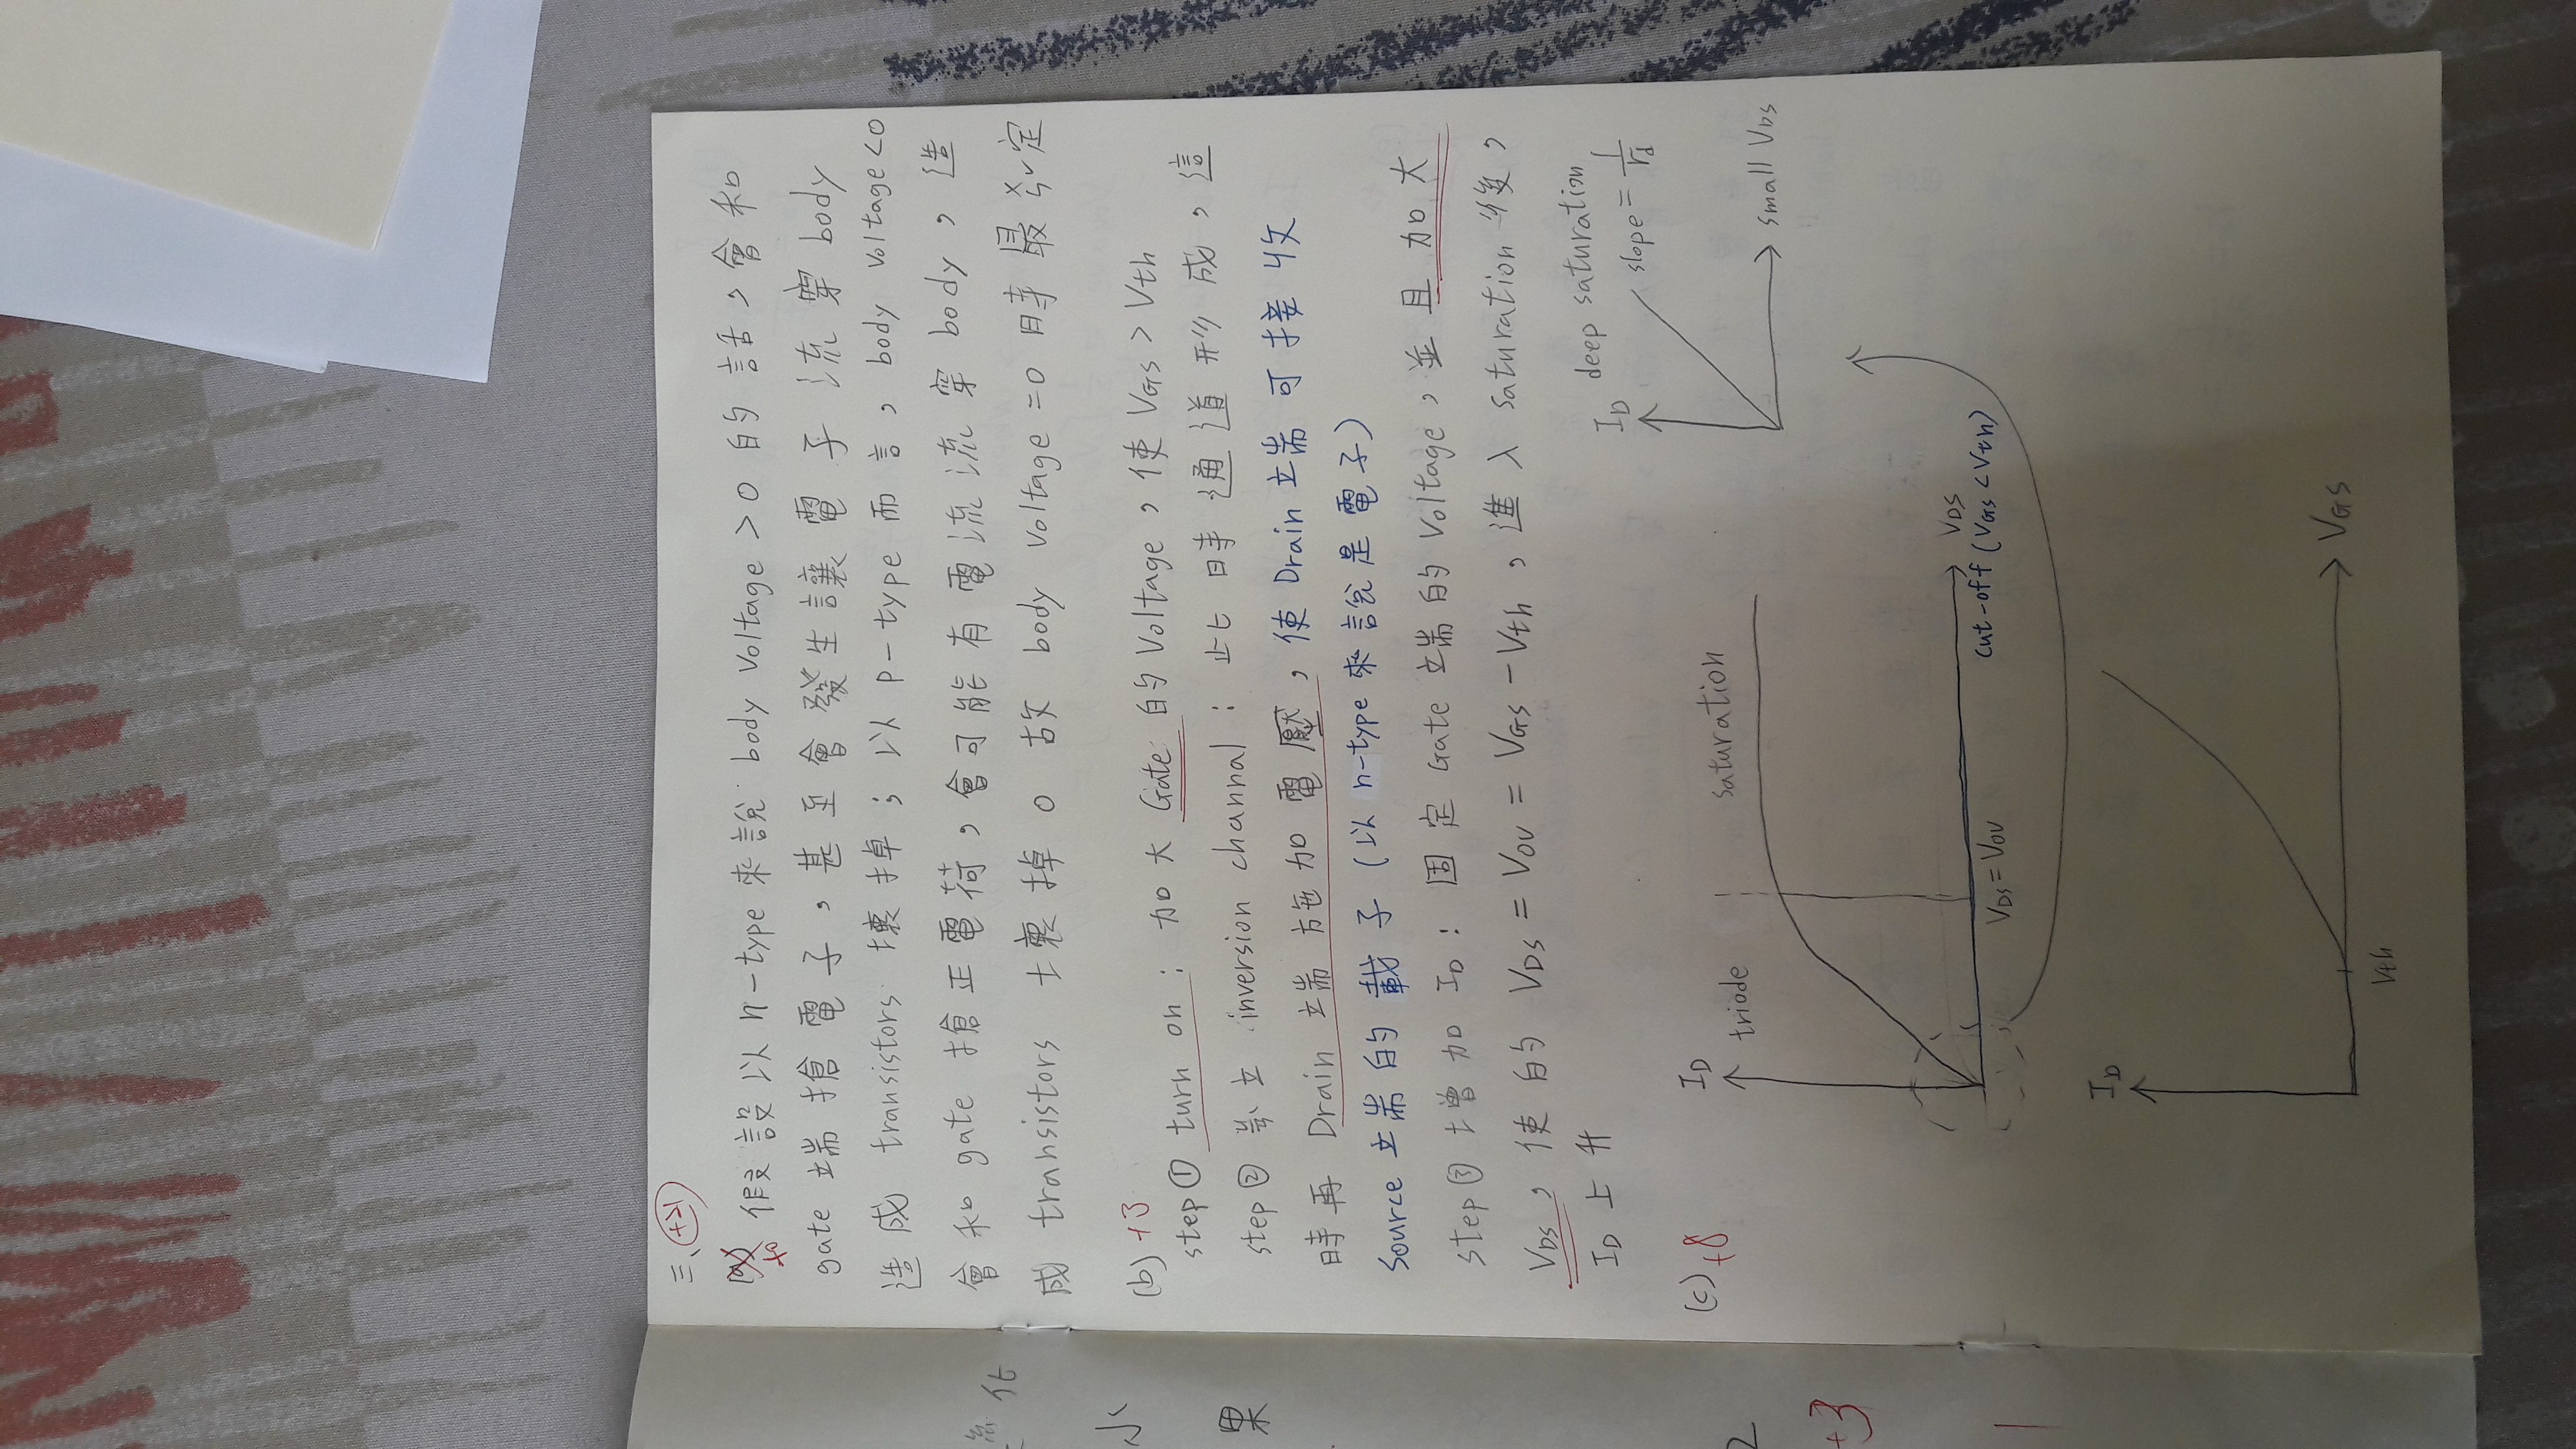 三、 +21
(a) +0 假設以 n-type 來說 body Voltage > 0 的話，會和
gate 端搶電子，甚至會發生讓電子流穿 body
造成 transistors 壞掉；以 p-type 而言，body Voltage < 0
會和 gate 搶正電荷，會可能有電流流穿 body，造
成 transistors 壞掉。故 body Voltage = 0 時最穩定
(b) +3
step ① turn on：加大 Gate 的 Voltage，使 VGS > Vth
step ② 建立 inversion channal：此時通道形成，這
時再 Drain 端施加電壓，使 Drain 端可接收
Source 端的載子 (以 n-type 來說是電子)
step ③ 增加 ID：固定 Gate 端的 Voltage，並且加大
VDS，使的 VDS = VOV = VGS - Vth，進入 saturation 後，
ID 上升
(c) +8
ID
triode
saturation
VDS
VDS = VOV
cut-off (VGS < Vth)
ID
deep saturation
slope = 1/rd
small VDS
ID
VGS
Vth
化
小
果
2
+3